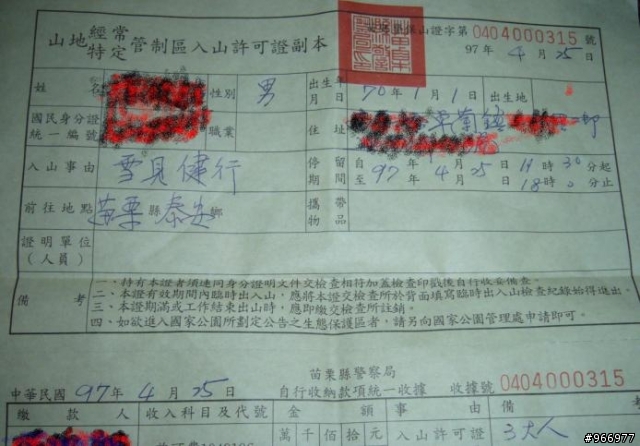 山地經常特定管制區入山許可證副本
保山證字第0404000315號
97年4月25日
姓名 性別 男 出生年月日 70年1月1日 出生地
國民身分證統一編號 職業 住址
入山事由 雪見健行 停留期間 自97年4月25日 時30分起
至 18時0分止
前往地點 苗栗縣泰安鄉 攜帶物品
證明單位(人員)
備考
一、持有本證者須連同身分證明文件交檢查相符加蓋檢查印戳後自行收妥備查。
二、本證有效期間內臨時出入山,應將本證交檢查所於背面填寫臨時出入山檢查紀錄始得進出。
三、本證期滿或工作結束出山時,應即繳交檢查所註銷。
四、如欲進入國家公園所劃定公告之生態保護區者,請另向國家公園管理處申請即可。
苗栗縣警察局
中華民國97年4月25日 自行收納款項統一收據 收據號0404000315
繳款人 收入科目及代號 金額 事由 備考
萬千佰拾元 入山許可證 3大人
#966977